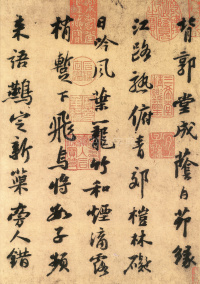 背郭堂成蔭白茆緣
江路熟俯青郊榿林礙
日吟風葉籠竹和煙滴露
梢暫下飛烏將數子頻
來語鷰定新巢旁人錯